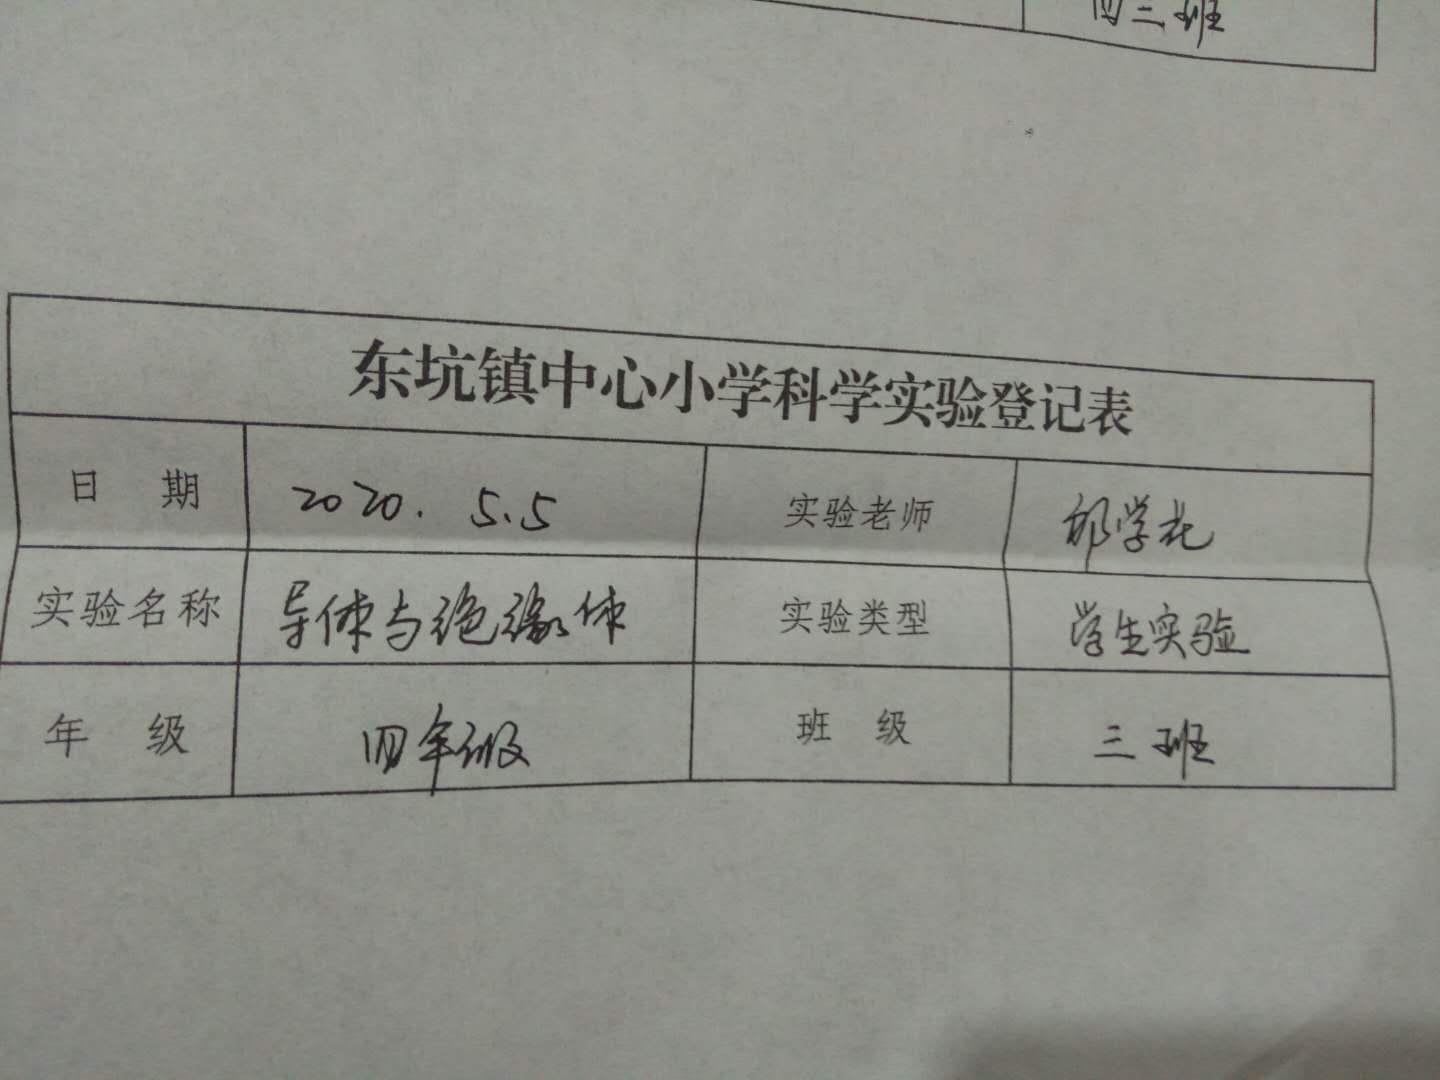 四三班
东坑镇中心小学科学实验登记表
日 期 2020.5.5 实验老师 邱学礼
实验名称 导体与绝缘体 实验类型 学生实验
年 级 四年级 班 级 三班